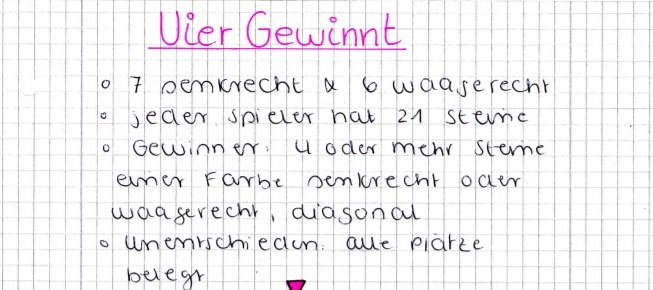 Vier Gewinnt
o 7 senkrecht & 6 waagerecht
o jeder spieler hat 21 steine
o Gewinner: 4 oder mehr steine
einer Farbe senkrecht oder
waagerecht, diagonal
o Unentschieden: alle Plätze
belegt